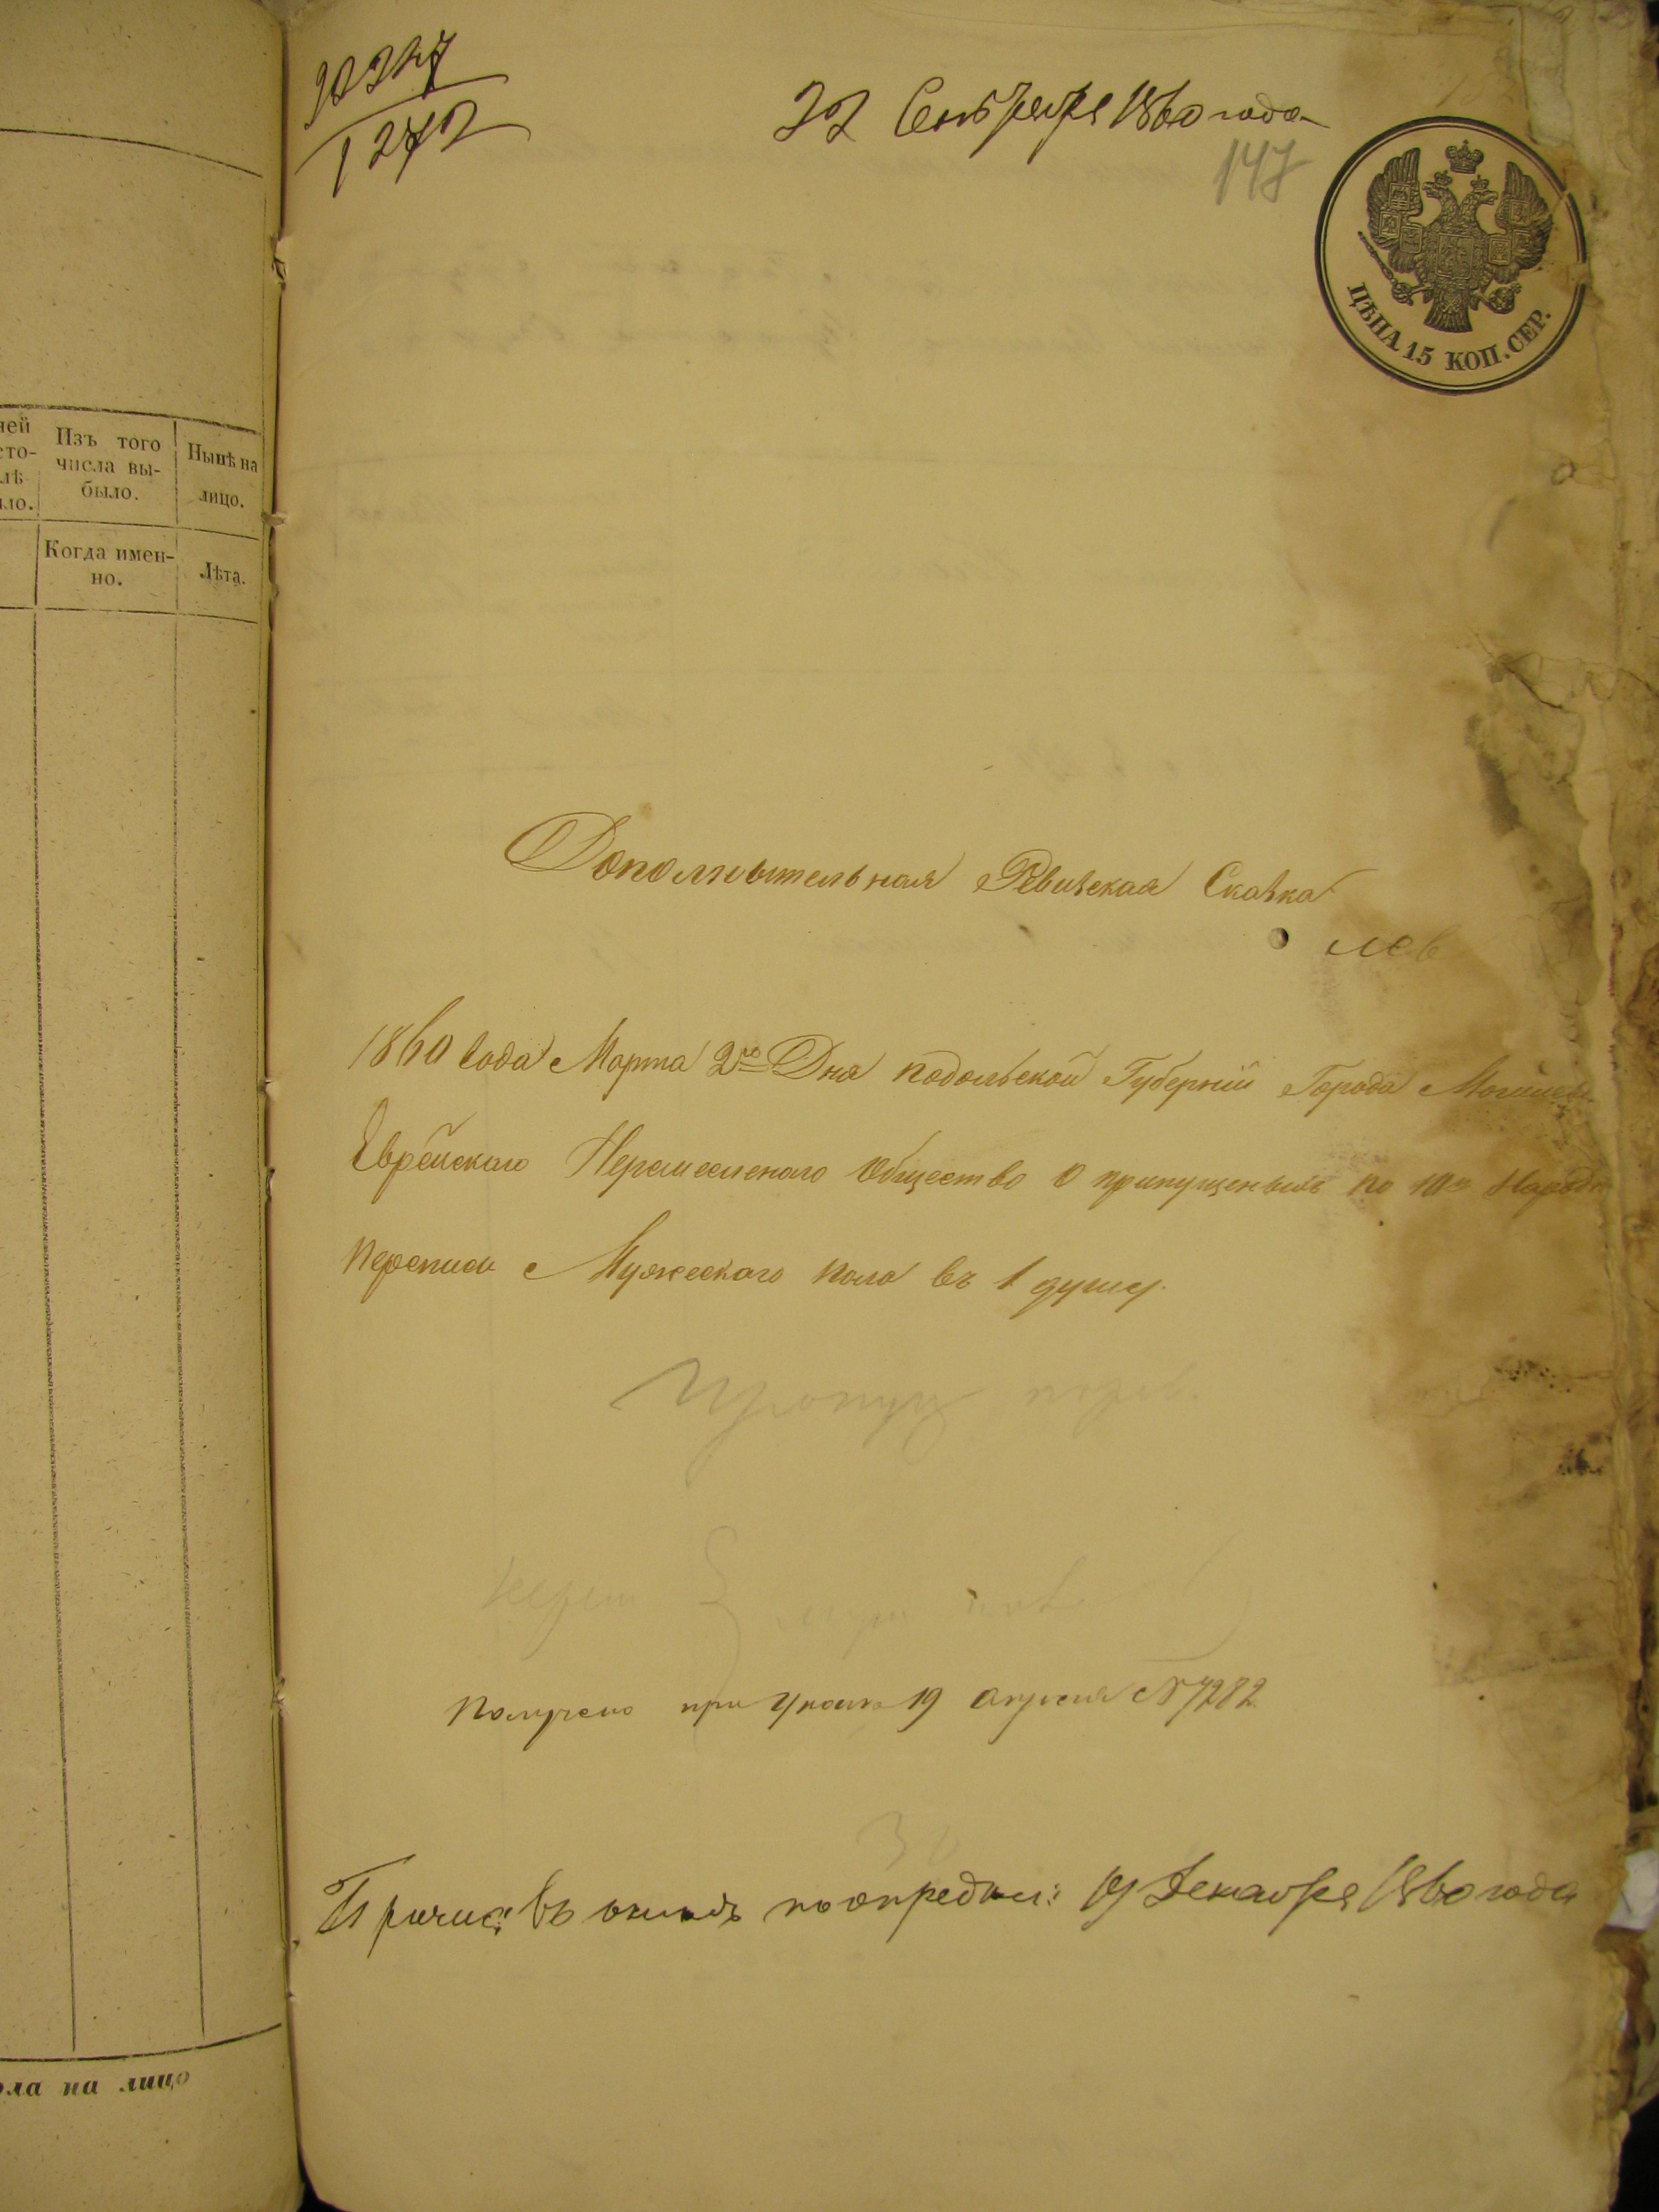 ней
сто-
лѣ
ло.
Изъ того
числа вы-
было.
Нынѣ на
лицо.
Когда имен-
но.
Лѣта.
ола на лицо
1272
22 Сентября 1860 года
147
ЦѢНА 15 КОП. СЕР.
Дополнительная Ревизская Сказка
лев
1860 Года Марта 2го Дня подольской Губерніи Города Могилев
Еврейскаго Общество о припущеныхъ по 10й Народ
Переписи Мужескаго пола въ 1 душу.
Пропущ
Получено при Указе 19 апреля № 7282
Причис: въ окладъ по определ: 19 Декабря 1860 года